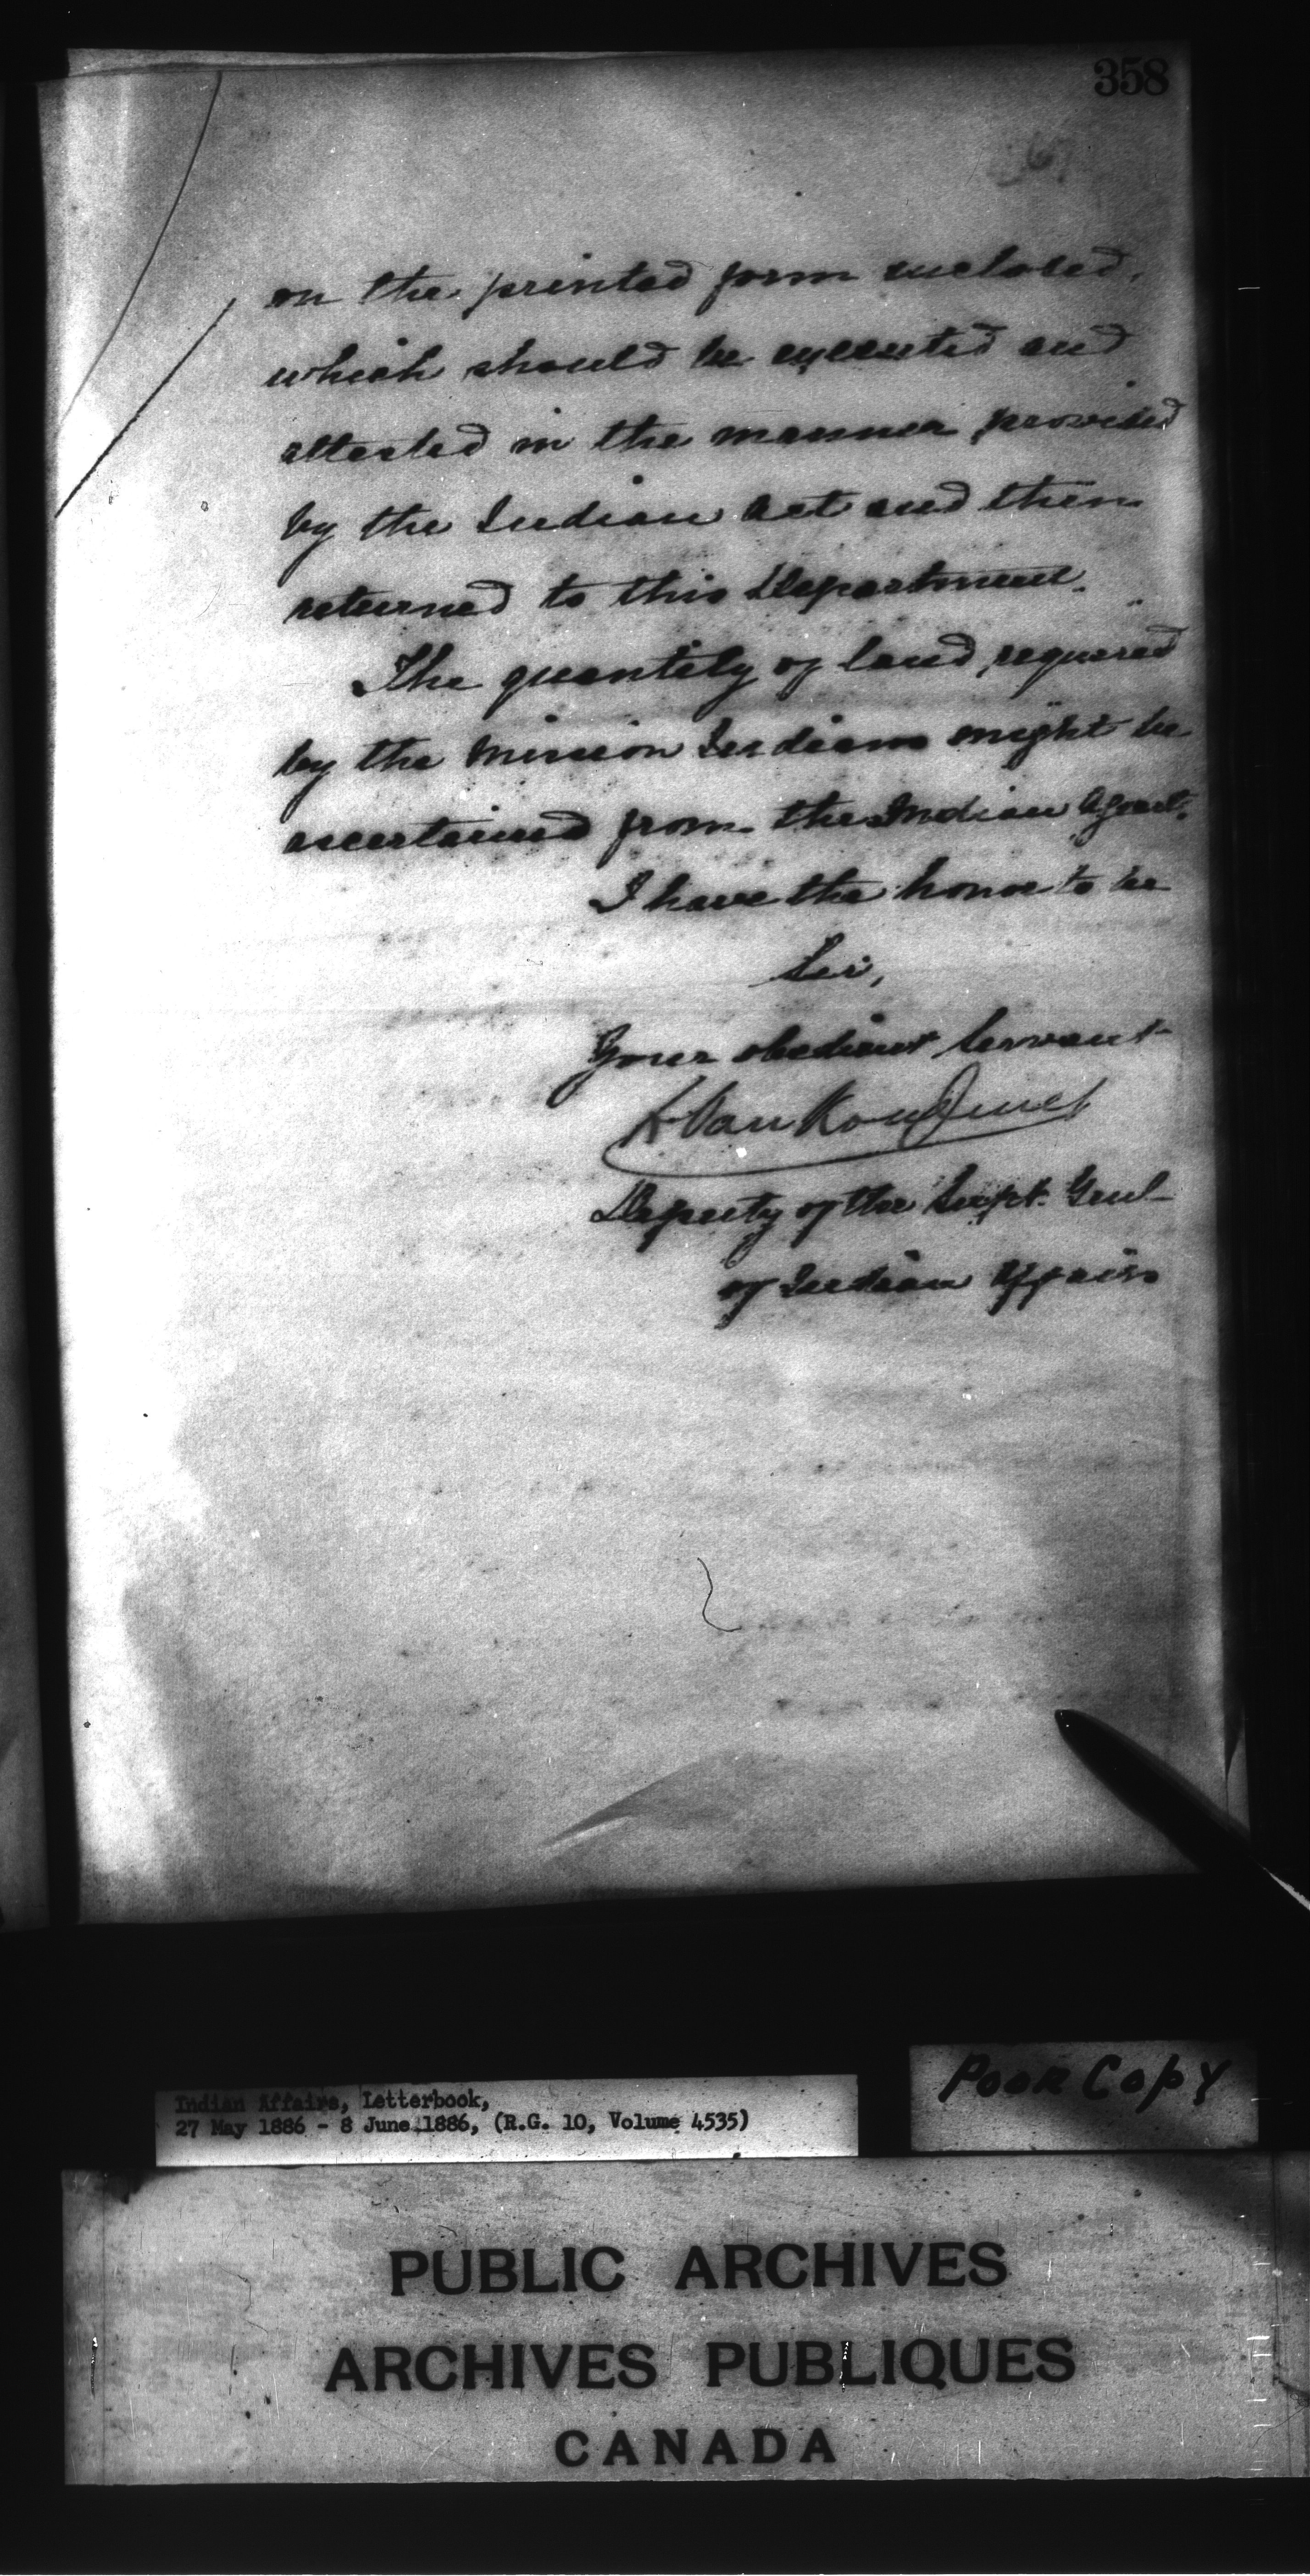 358
on the printed form enclosed,
which should be executed and
attested in the manner provided
by the Indian Act and then
returned to this Department.
The quantity of land required
by the Mission Indians might be
ascertained from the Indian Agent.
I have the honor to be
Sir,
Your obedient Servant
L. VanKoughnet
Deputy of the Supt. Genl
of Indian Affairs
Poor Copy
Indian Affairs, Letterbook,
27 May 1886 - 8 June 1886, (R.G. 10, Volume 4535)
PUBLIC ARCHIVES
ARCHIVES PUBLIQUES
CANADA